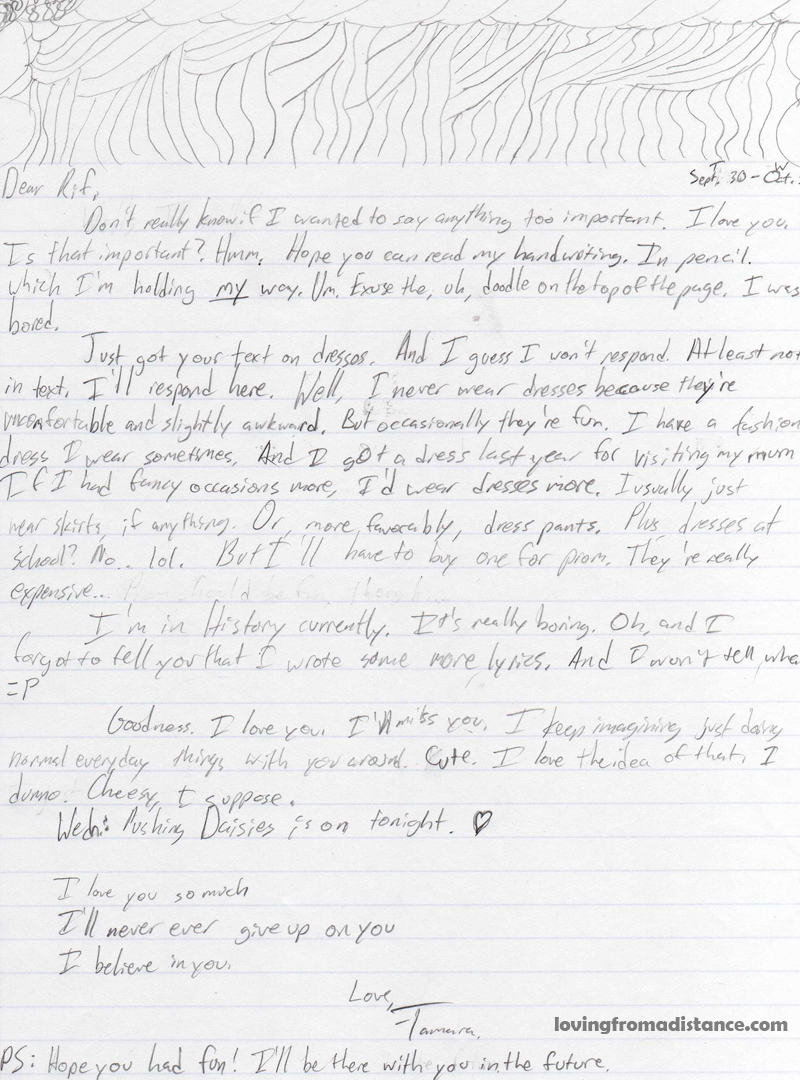 Sept. 30 - Oct.
Dear Rif,
Don't really know if I wanted to say anything too important. I love you.
Is that important? Hmm. Hope you can read my handwriting. In pencil.
which I'm holding my way. Um. Exuse the, uh, doodle on the top of the page. I was
bored.
Just got your text on dresses. And I guess I won't respond. At least not
in text. I'll respond here. Well, I never wear dresses because they're
uncomfortable and slightly awkward. But occasionally they're fun. I have a fashion
dress I wear sometimes. And I got a dress last year for visiting my mum
If I had fancy occasions more, I'd wear dresses more. I usually just
wear skirts, if anything. Or, more favorably, dress pants. Plus, dresses at
school? No.. lol. But I'll have to buy one for prom. They're really
expensive...
I'm in History currently. It's really boring. Oh, and I
forgot to tell you that I wrote some more lyrics. And I won't tell
=P
Goodness. I love you. I'll miss you. I keep imagining just doing
normal everyday things with you around. Cute. I love the idea of that. I
dunno. Cheesy, I suppose.
Wedn: Pushing Daisies is on tonight. ♡
I love you so much
I'll never ever give up on you
I believe in you.
Love,
-Tamara.
lovingfromadistance.com
PS: Hope you had fun! I'll be there with you in the future.